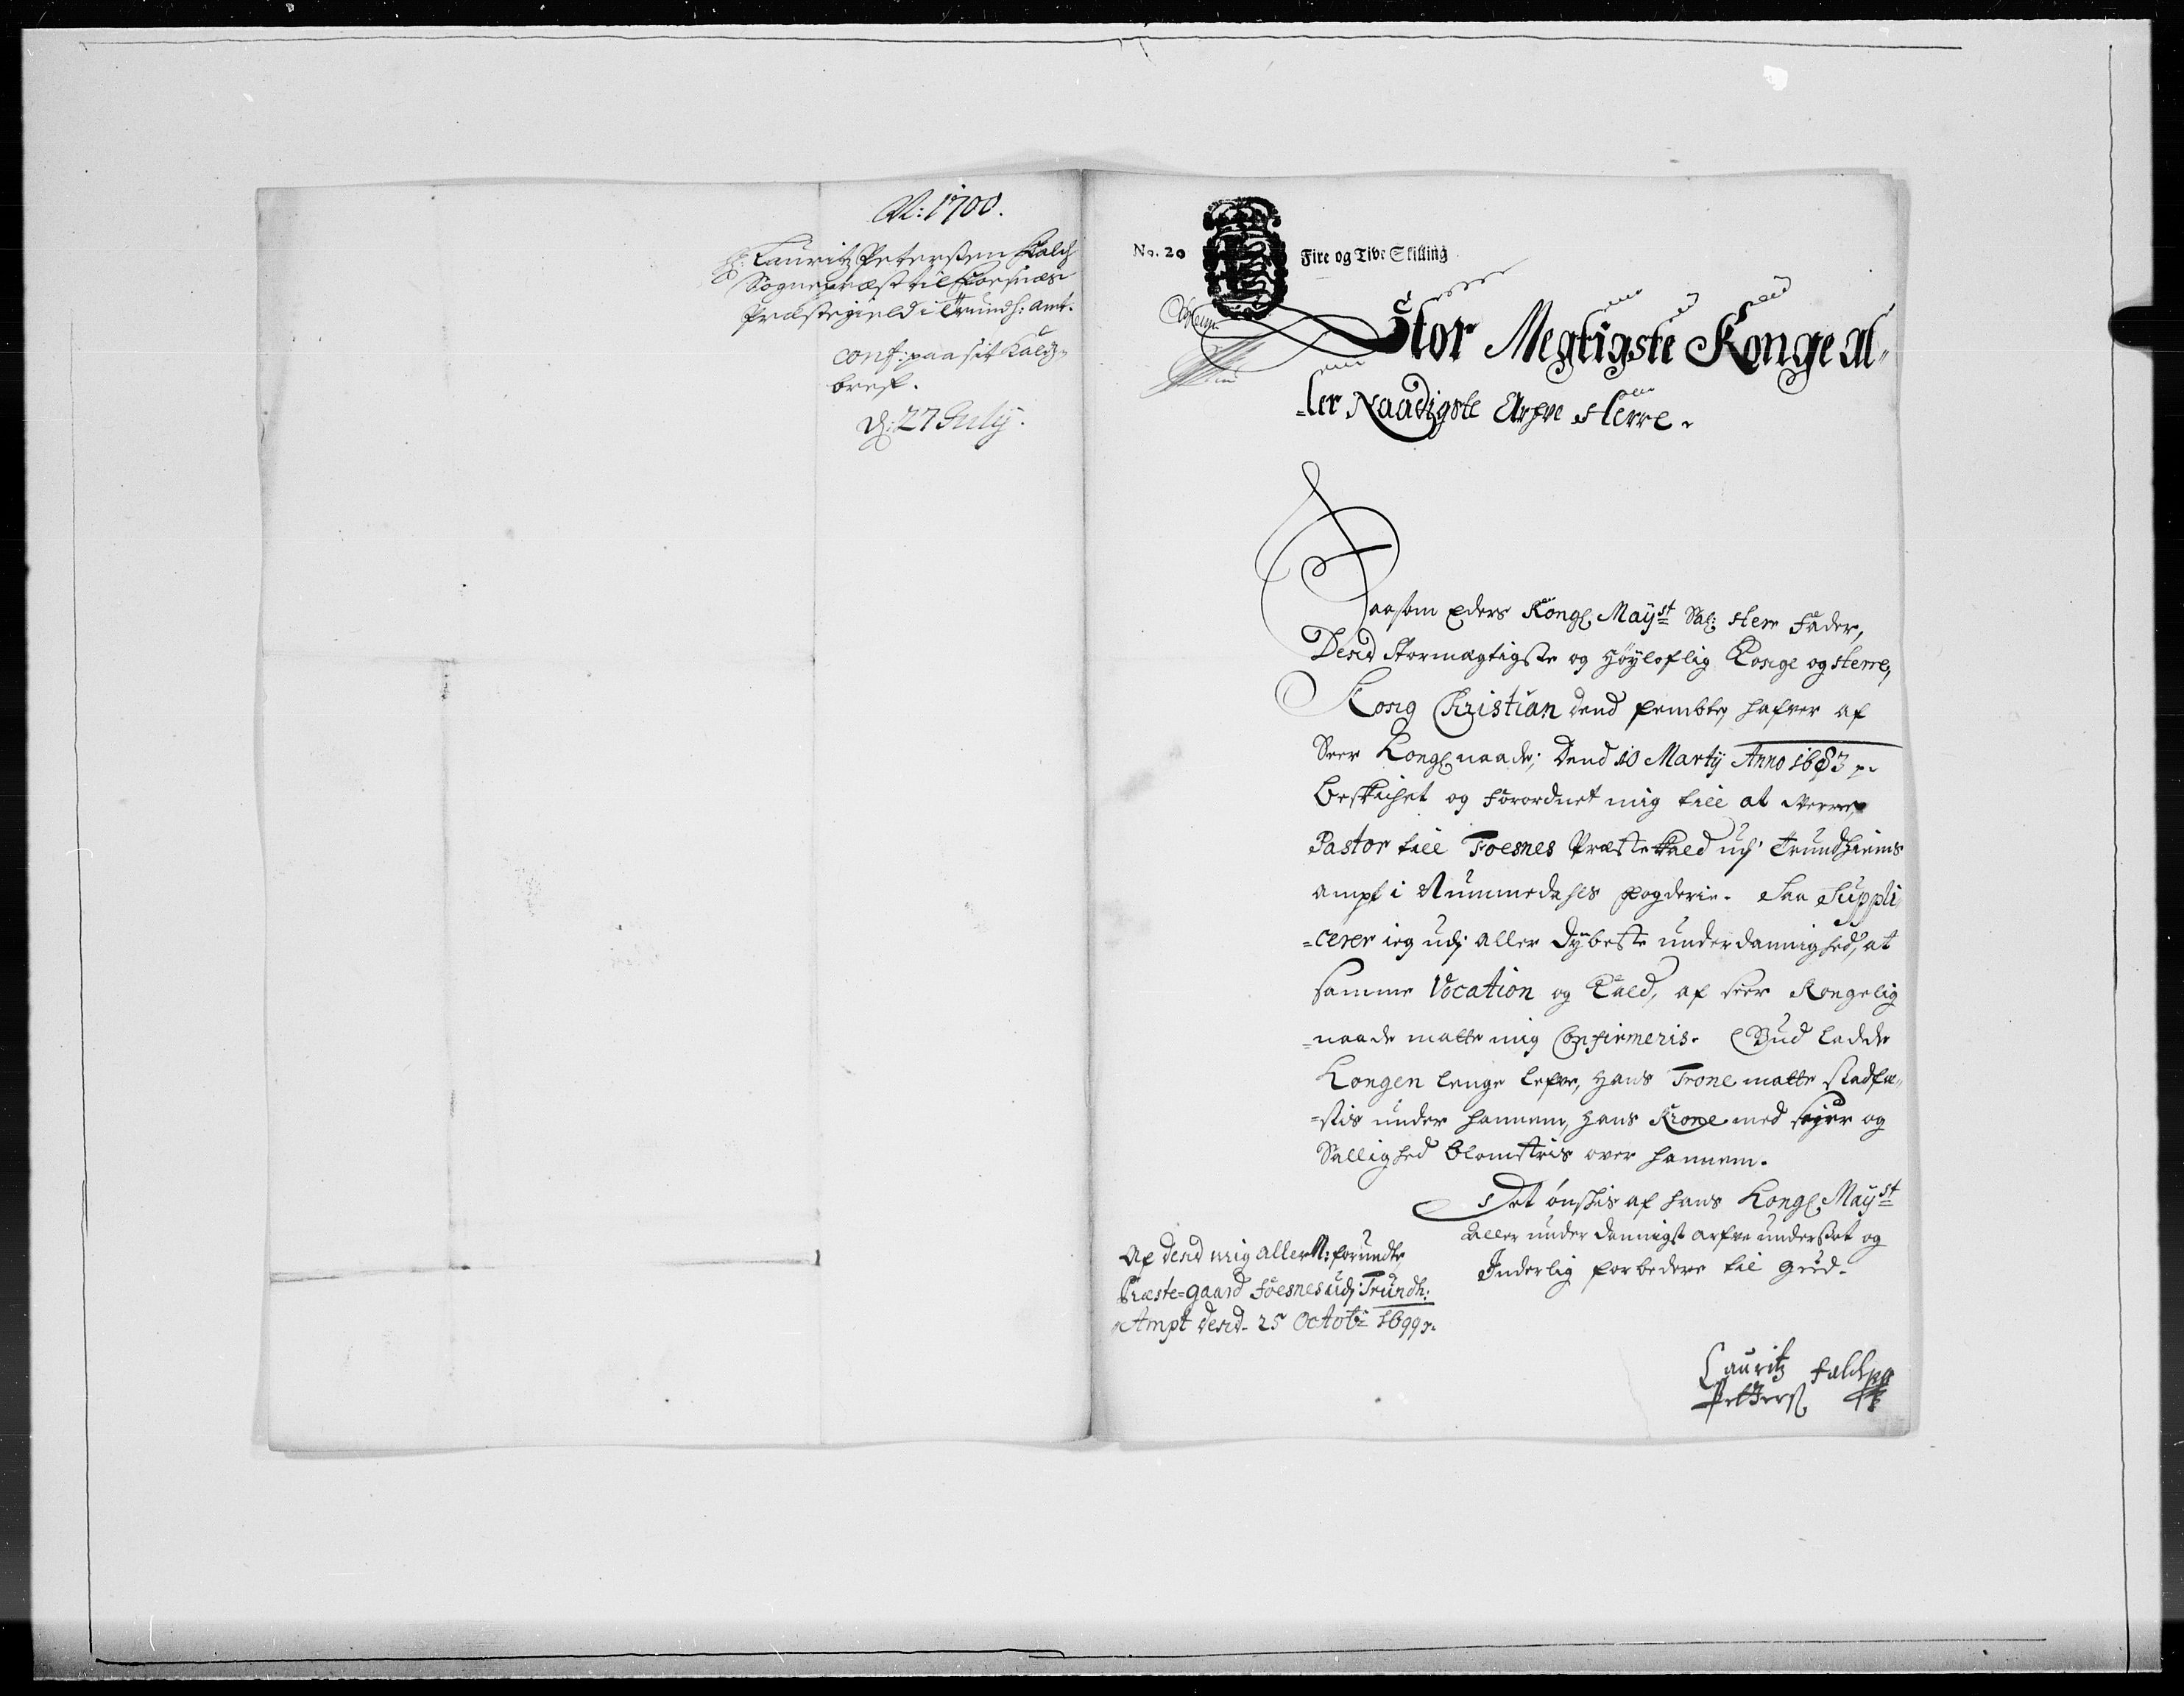 N: 1700.
H: Lauritz Petersen Falch
Sognepræst til Foesnæs
Præstegield i Trundh: amt.
conf: paa sit Kalds-
breff.
D: 27 July.
No. 20 Fire og Tive Skilling
Stor Megtigste Konge Al-
-ler Naadigste Arfve Herre.
Saasom Eders Kongl. Mayst Sal: Herr Fader,
Dend Stormægtigste og Høyloflig Konge og Herre,
Kong Christian dend fembte, hafver af
Seer Kongl naade, Dend 10 Marty Anno 1683
beskichet og forordnet mig till at werre
Pastor till Foesnes Præstekald udj Trundhiems
ampt i Nummedahls fogderie. Saa Suppli-
-cerer ieg udj aller dybeste underdannighed, at
samme Vocation og Kald, af seer Kongelig
naade matte mig Confirmeris. Gud ladde
Kongen lenge lefve, hans Trone matte stadfæ-
-stis under hannem, hans Krone med sejer og
Sallighed blomstris over hannem.
Det ønskis af hans Kongl. Mayst
Aller under dannigst arfve undersat og
Inderlig forbedere til Gud.
Af dend mig allerN: forundte
Præste-gaard Foesnes udj Trundh:
Ampt dend 25 Octob: 1699
Lauritz Falch
Petters.